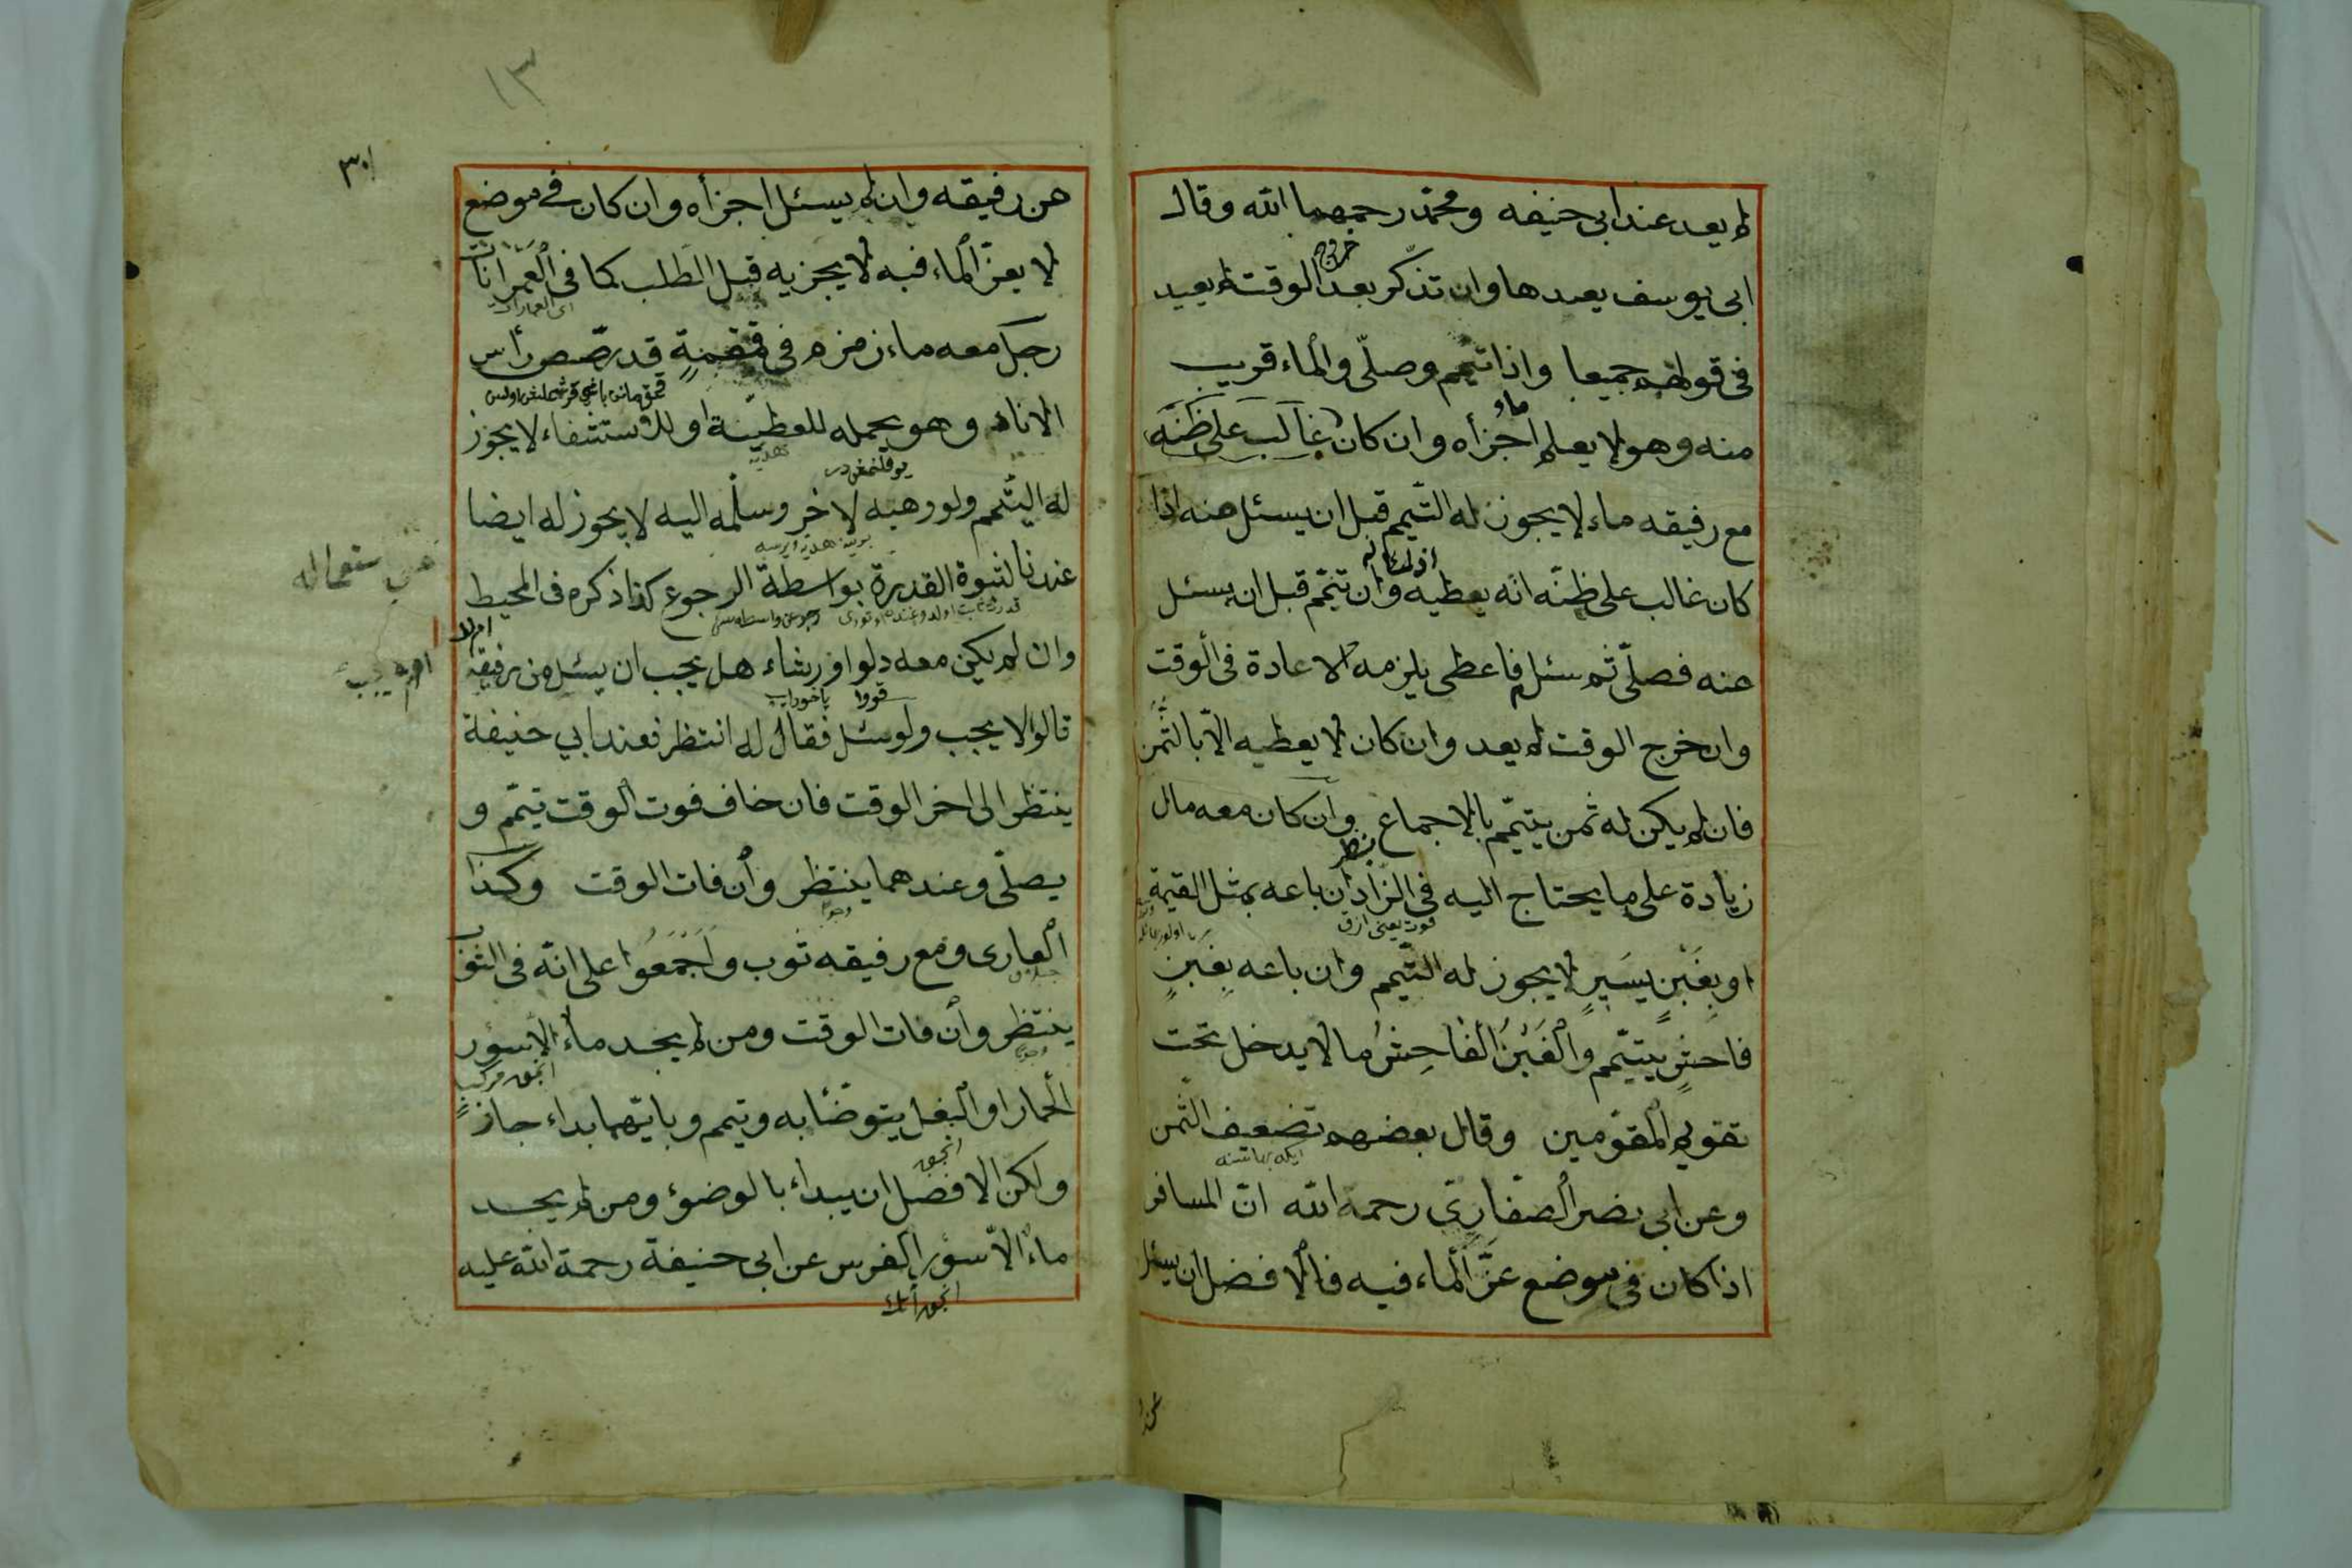 لم يعد عند ابى حنيفه ومحمد رحمهما الله وقال
ابى يوسف يعيدها وان تذكر بعد خروج الوقت لم يعيد
فى قولهم جميعا واذا تيمم وصلّى والماء قريب
منه وهو لا يعلم اجزأه وان كان غالب على ظنّه
مع رفيقه ماء لا يجوز له التّيمم قبل ان يسئل منه اذا
كان غالب على ظنّه انّه يعطيه وان تيمّم قبل ان يسئل
عنه فصلّى ثم سئل فاعطى يلزمه الاعادة فى الوقت
وان خرج الوقت لم يعد وان كان لا يعطيه الّا بالثّمن
فان لم يكن له ثمن يتيمّم بالاجماع وان كان معه مال
زيادة على ما يحتاج اليه فى الزّاد ان باعه بمثل القيمة
او بِغَبْنٍ يَسيرٍ لا يجوز له التّيمم وان باعه بِغبنٍ
فاحشٍ يتيّمم والْغَبْنُ الْفَاحِشُ ما لا يدخل تحت
تقويم المقوّمين وقال بعضهم تضعيف الثّمن
وعن ابى نصر الصّفارىّ رحمة الله انّ المسافر
اذا كان فى موضع عزّ الماء فيه فالافضل ان يسئل
١٣
من رفيقه وان لم يسئل اجزأه وان كان فى موضع
لا يعزّ الماء فيه لا يجزيه قبل الطلب كما فى العمرانات
اى العمارات
رجل معه ماء زمزم فى قمقمةٍ قد رصّص رأس
الاناء وهو يحمله للعطيّة او للاستشفاء لا يجوز
هديه
له التّيمم ولو وهبه لاخر وسلّمه اليه لا يجوز له ايضا
عندنا لثبوة القدرة بواسطة الرجوع كذا ذكره فى المحيط
وان لم يكن معه دلو او رشاء هل يجب ان يسئل من رفيقه
ام لا
قالوا لا يجب ولو سئل فقال له انتظر فعند ابي حنيفة
ينتظر الى اخر الوقت فان خاف فوت الوقت تيمّم و
يصلّى وعندهما ينتظر وان فات الوقت وكذا
العارى ومع رفيقه ثوب وَاَجْمَعُوا على انّه فى الثوب
ينتظر وان فات الوقت ومن لم يجد ماء الّا سؤر
الحمار او البغل يتوضّأ به وتيمم وبايّهما بداء جاز
ولكن الافضل ان يبداء بالوضوء ومن لم يجد
ماء الّا سؤر الفرس عن ابى حنيفة رحمة الله عليه